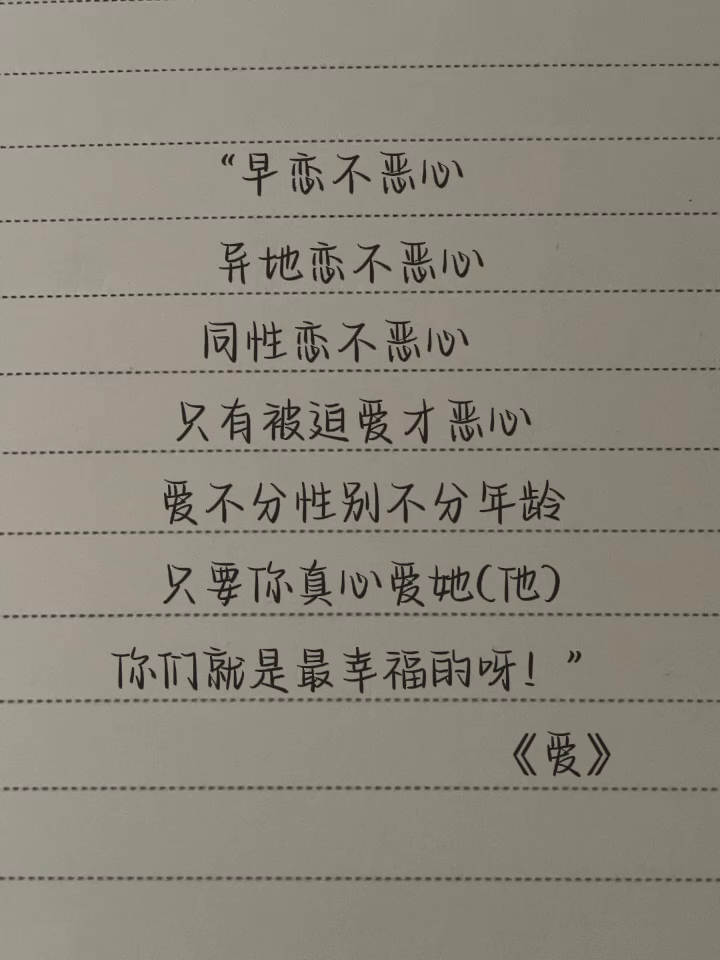 “早恋不恶心
异地恋不恶心
同性恋不恶心
只有被迫爱才恶心
爱不分性别不分年龄
只要你真心爱她(他)
你们就是最幸福的呀!”
《爱》